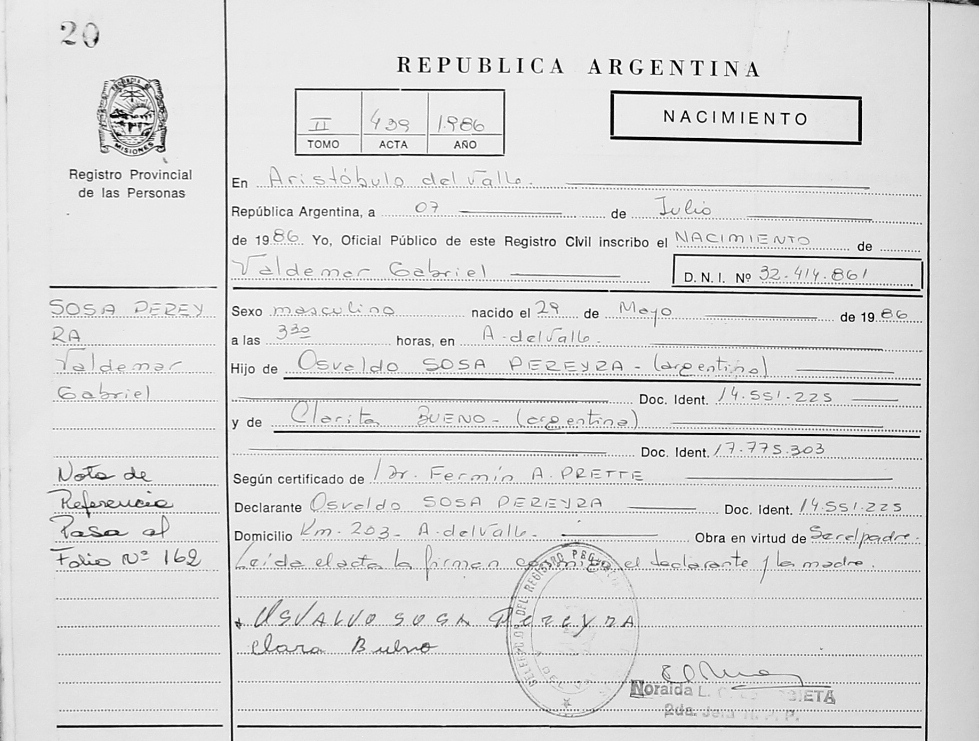 20
REPUBLICA ARGENTINA
II 439 1.986
TOMO ACTA AÑO
NACIMIENTO
MISIONES
Registro Provincial
de las Personas
En Aristóbulo del Valle.
República Argentina, a 07 de Julio
de 1986. Yo, Oficial Público de este Registro Civil inscribo el NACIMIENTO de
Valdemar Gabriel D.N.I. Nº 32.414.861
SOSA PEREY
RA
Valdemar
Gabriel
Nota de
Referencia
Pasa al
Folio Nº 162
Sexo masculino nacido el 29 de Mayo de 1986
a las 3 30 horas, en A. del Valle.
Hijo de Osvaldo SOSA PEREYRA - (argentino)
Doc. Ident. 14.551.225
y de Clarita BUENO - (argentina)
Doc. Ident. 17.775.303
Según certificado de Dr. Fermín A. PRETTE
Declarante Osvaldo SOSA PEREYRA Doc. Ident. 14.551.225
Domicilio Km. 203 - A. del Valle. Obra en virtud de Ser el padre.
Leída el acta la firman conmigo el declarante y la madre.
OSVALDO SOSA PEREYRA
Clara Bueno
DEL REGISTRO
Noraida L.
2da.